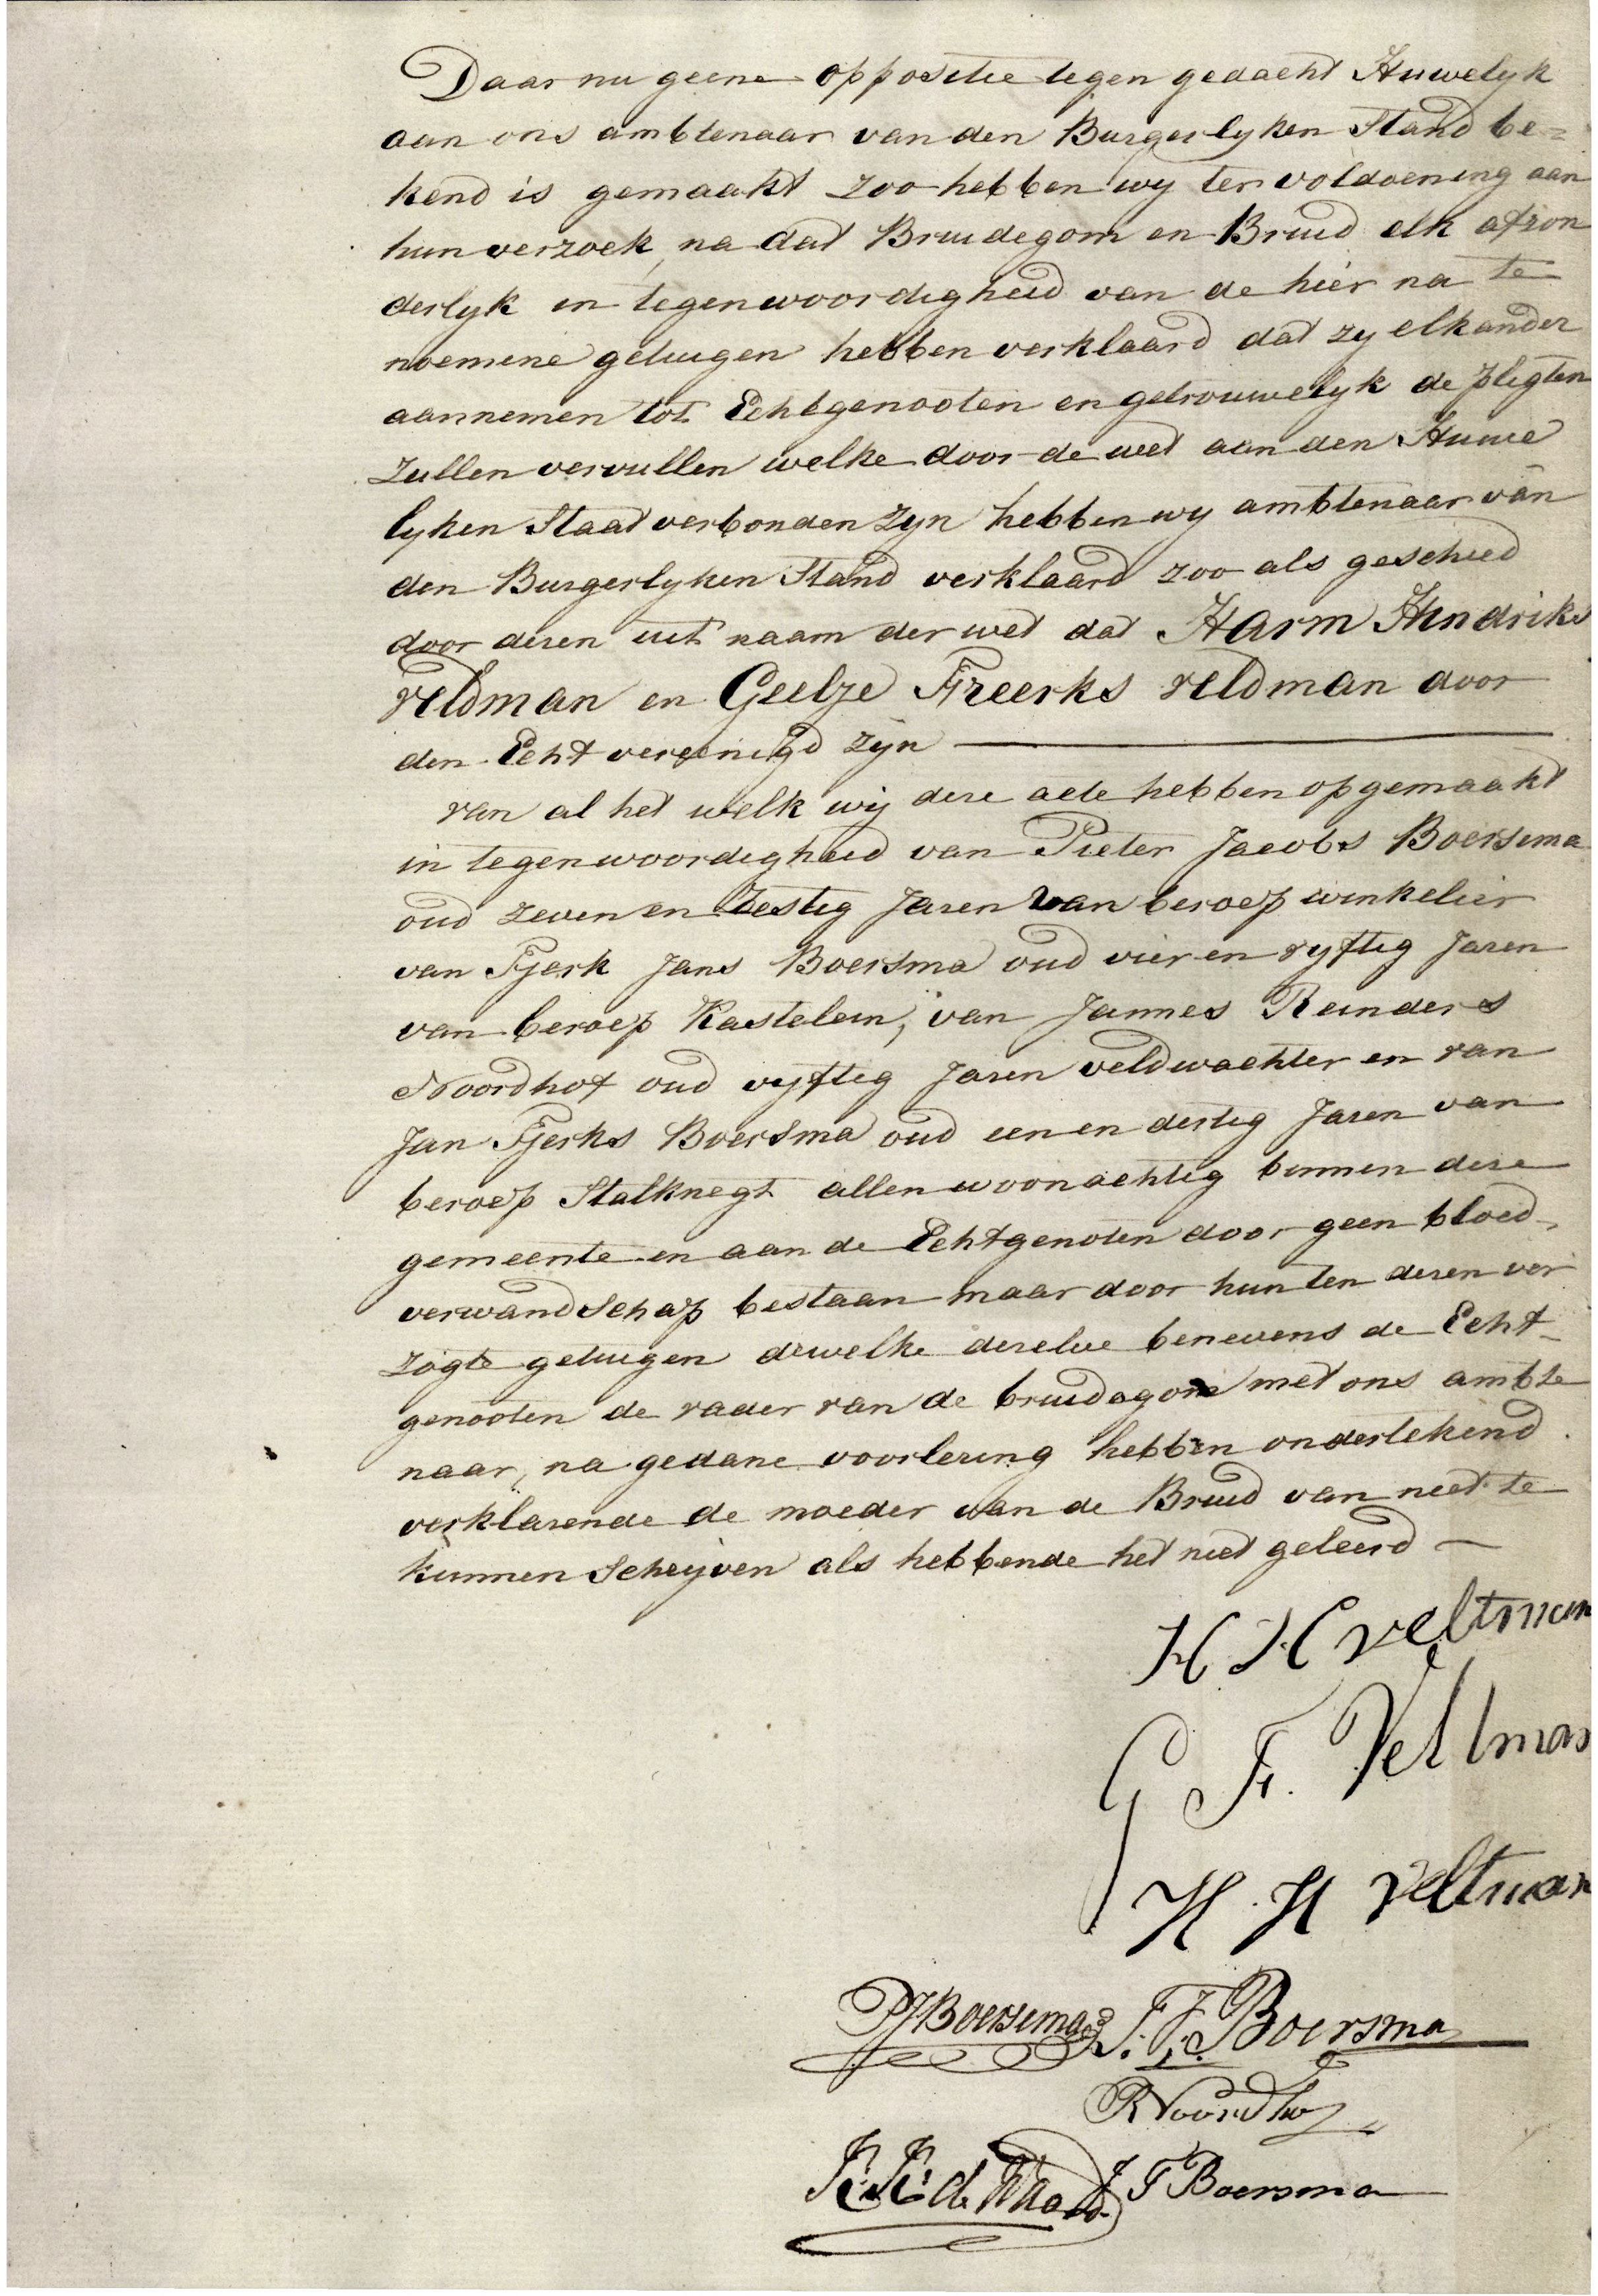 Daar nu geene oppositie tegen gedacht Huwelyk
aan ons ambtenaar van den Burgerlyken Stand be=
kend is gemaakt zoo hebben wy ter voldoening aan
hun verzoek, na dat Bruidegom en Bruid elk afzon
derlyk in tegenwoordigheid van de hier na te
noemene getuigen hebben verklaard dat zy elkander
aannemen tot Echtgenooten en getrouwelyk de pligten
zullen vervullen welke door de wet aan den Huwe
lyken Staat verbonden zyn hebben wy ambtenaar van
den Burgerlyken Stand verklaard zoo als geschied
door dezen uit naam der wet dat Harm Hindriks
Veldman en Geelze Freerks Veldman door
den Echt vereenigd zyn
van al het welk wij deze acte hebben opgemaakt
in tegenwoordigheid van Pieter Jacobs Boersema
oud zeven en Zestig Jaren van beroep winkelier
van Tjerk Jans Boersma oud vier en vyftig Jaren
van beroep Kastelein, van Jannes Reinders
Noordhof oud vyftig Jaren veldwachter en van
Jan Tjerks Boersma oud een en dertig Jaren van
beroep Stalknegt allen woonachtig binnen deze
gemeente en aan de Echtgenoten door geen bloed-
verwandschap bestaan maar door hun ten dezen ver
zogte getuigen dewelke dezelve benevens de Echt-
genooten de vader van de bruidegom met ons ambte
naar, na gedane voorlezing hebben onderteekend
verklarende de moeder van de Bruid van niet te
kunnen Schryven als hebbende het niet geleerd
H H Veltman
G F. Veltman
H. H Veltman
PJBoersema T. J. Boersma
R Noordhof
J T Boersma